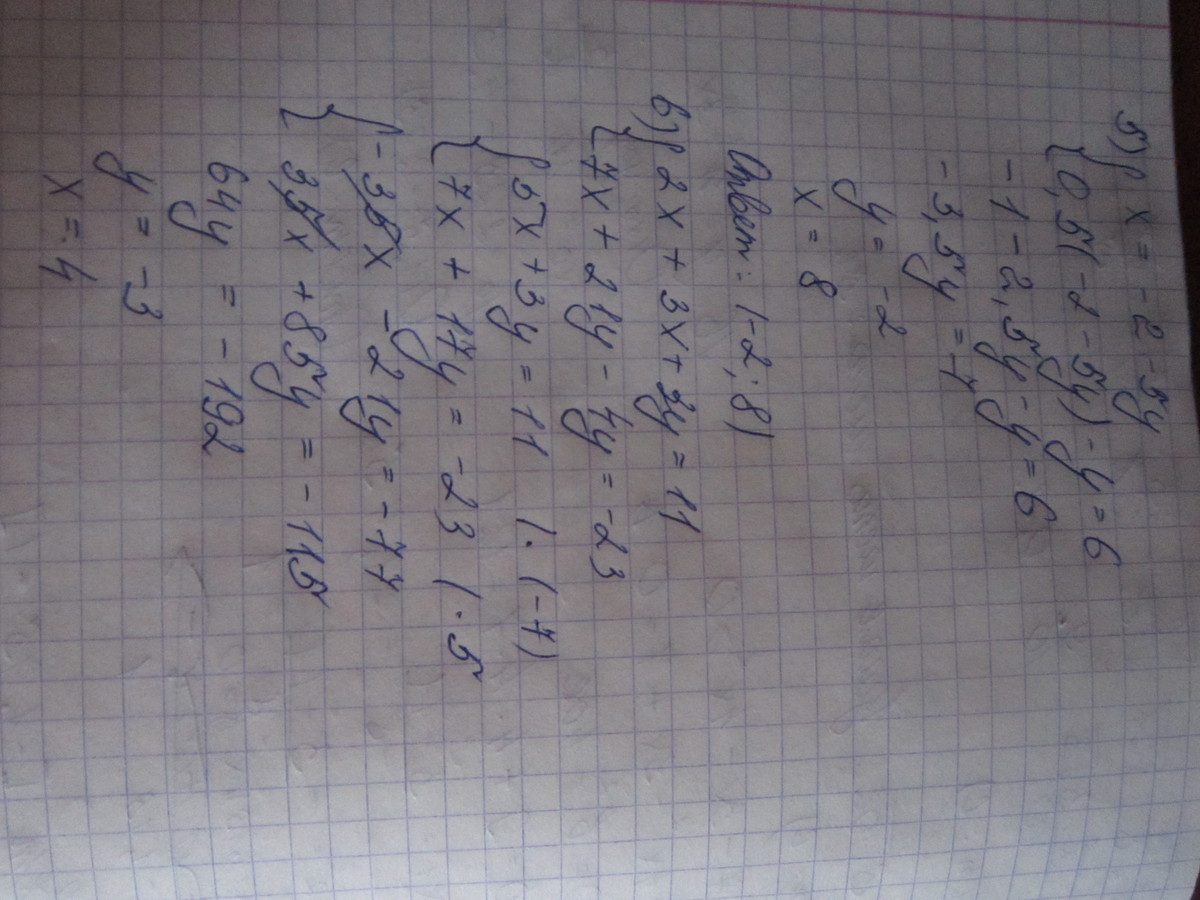 б) { x = -2 - 5y
0,5(-2 - 5y) - y = 6
-1 - 2,5y - y = 6
-3,5y = 7
y = -2
x = 8
Ответ: (-2; 8)
в) { 2x + 3x + 3y = 11
7x + 21y - 4y = -23
{ 5x + 3y = 11 | · (-7)
7x + 17y = -23 | · 5
{ -35x - 21y = -77
35x + 85y = -115
64y = -192
y = -3
x = 4